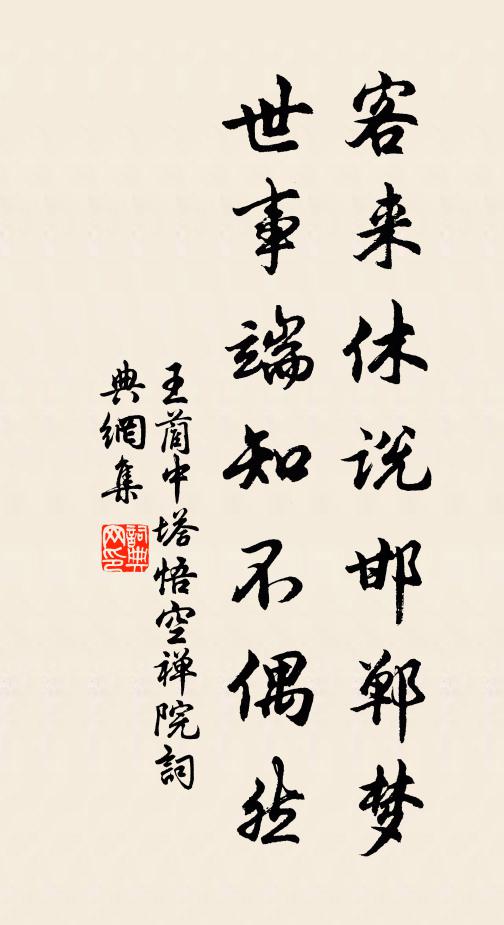 客来休说邯郸梦
世事端知不偶然
王蔺中塔悟空禅院詞
典網集
詞典網印